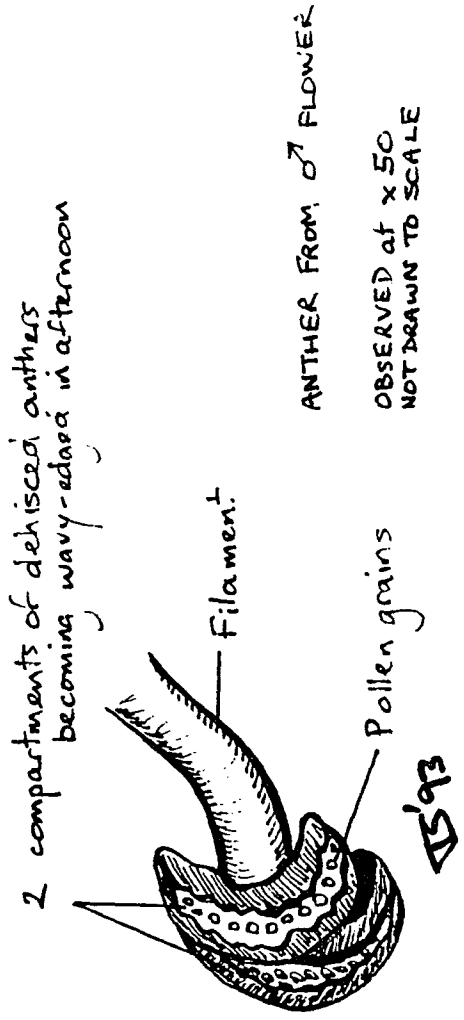 2 compartments of dehisced anthers
becoming wavy-edged in afternoon
Filament
Pollen grains
ANTHER FROM ♂ FLOWER
OBSERVED at x 50
NOT DRAWN TO SCALE
'93